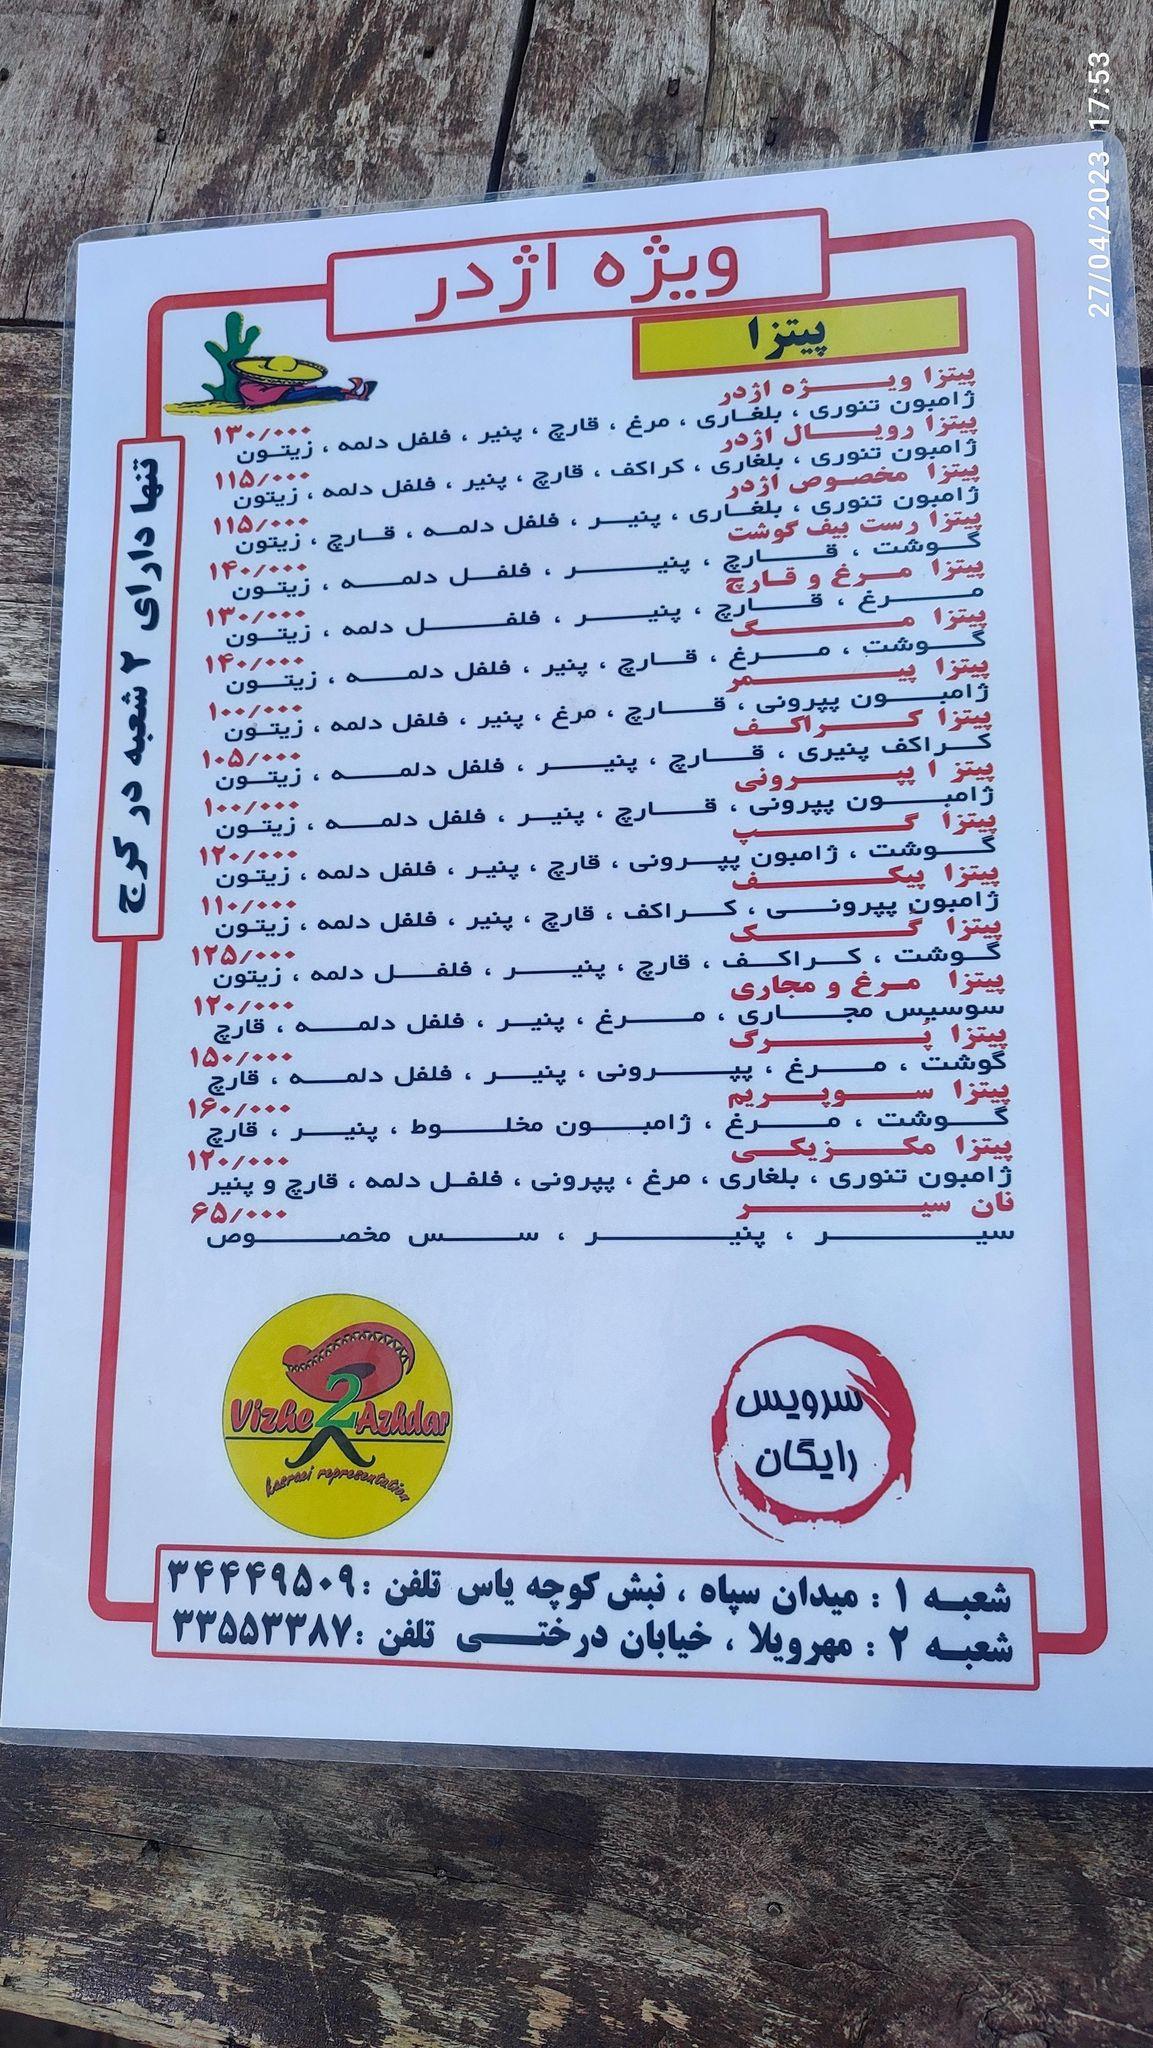 27/04/2023 17:53
ویژه اژدر
پیتزا
پیتزا ویژه اژدر ۱۳۰/۰۰۰
ژامبون تنوری ، بلغاری ، مرغ ، قارچ ، پنیر ، فلفل دلمه ، زیتون
پیتزا رویال اژدر ۱۱۵/۰۰۰
ژامبون تنوری ، بلغاری ، کراکف ، قارچ ، پنیر ، فلفل دلمه ، زیتون
پیتزا مخصوص اژدر ۱۱۵/۰۰۰
ژامبون تنوری ، بلغاری ، پنیر ، فلفل دلمه ، قارچ ، زیتون
پیتزا رست بیف گوشت ۱۴۰/۰۰۰
گوشت ، قارچ ، پنیر ، فلفل دلمه ، زیتون
پیتزا مرغ و قارچ ۱۳۰/۰۰۰
مرغ ، قارچ ، پنیر ، فلفل دلمه ، زیتون
پیتزا مگ ۱۴۰/۰۰۰
گوشت ، مرغ ، قارچ ، پنیر ، فلفل دلمه ، زیتون
پیتزا پیمر ۱۰۰/۰۰۰
ژامبون پپرونی ، قارچ ، مرغ ، پنیر ، فلفل دلمه ، زیتون
پیتزا کراکف ۱۰۵/۰۰۰
کراکف پنیری ، قارچ ، پنیر ، فلفل دلمه ، زیتون
پیتزا پپرونی ۱۰۰/۰۰۰
ژامبون پپرونی ، قارچ ، پنیر ، فلفل دلمه ، زیتون
پیتزا گپ ۱۲۰/۰۰۰
گوشت ، ژامبون پپرونی ، قارچ ، پنیر ، فلفل دلمه ، زیتون
پیتزا پیکف ۱۱۰/۰۰۰
ژامبون پپرونی ، کراکف ، قارچ ، پنیر ، فلفل دلمه ، زیتون
پیتزا گک ۱۲۵/۰۰۰
گوشت ، کراکف ، قارچ ، پنیر ، فلفل دلمه ، زیتون
پیتزا مرغ و مجاری ۱۲۰/۰۰۰
سوسیس مجاری ، مرغ ، پنیر ، فلفل دلمه ، قارچ
پیتزا پُرگ ۱۵۰/۰۰۰
گوشت ، مرغ ، پپرونی ، پنیر ، فلفل دلمه ، قارچ
پیتزا سوپریم ۱۶۰/۰۰۰
گوشت ، مرغ ، ژامبون مخلوط ، پنیر ، قارچ
پیتزا مکزیکی ۱۲۰/۰۰۰
ژامبون تنوری ، بلغاری ، مرغ ، پپرونی ، فلفل دلمه ، قارچ و پنیر
نان سیر ۶۵/۰۰۰
سیر ، پنیر ، سس مخصوص
تنها دارای ۲ شعبه در کرج
سرویس
رایگان
Vizhe 2 Azhdar
kasraei representation
شعبه ۱ : میدان سپاه ، نبش کوچه یاس تلفن : ۳۴۴۴۹۵۰۹
شعبه ۲ : مهرویلا ، خیابان درختی تلفن : ۳۳۵۵۳۳۸۷